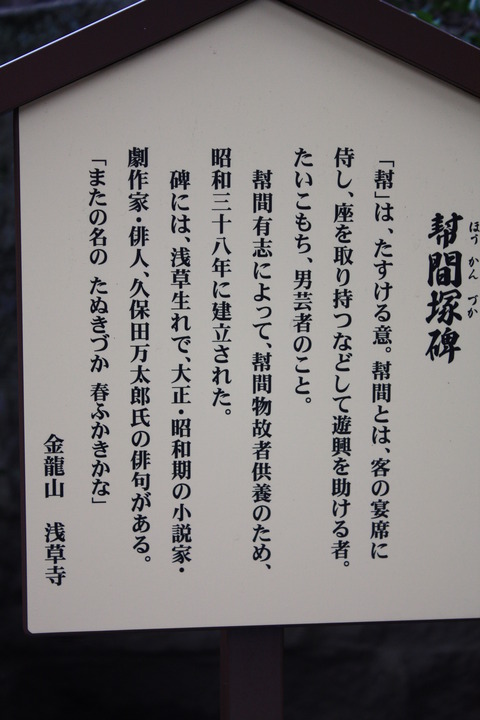 幇間塚碑
ほうかんづか
「幇」は、たすける意。幇間とは、客の宴席に
侍し、座を取り持つなどして遊興を助ける者。
たいこもち、男芸者のこと。
幇間有志によって、幇間物故者供養のため、
昭和三十八年に建立された。
碑には、浅草生れで、大正・昭和期の小説家・
劇作家・俳人、久保田万太郎氏の俳句がある。
「またの名の たぬきづか 春ふかきかな」
金龍山 浅草寺